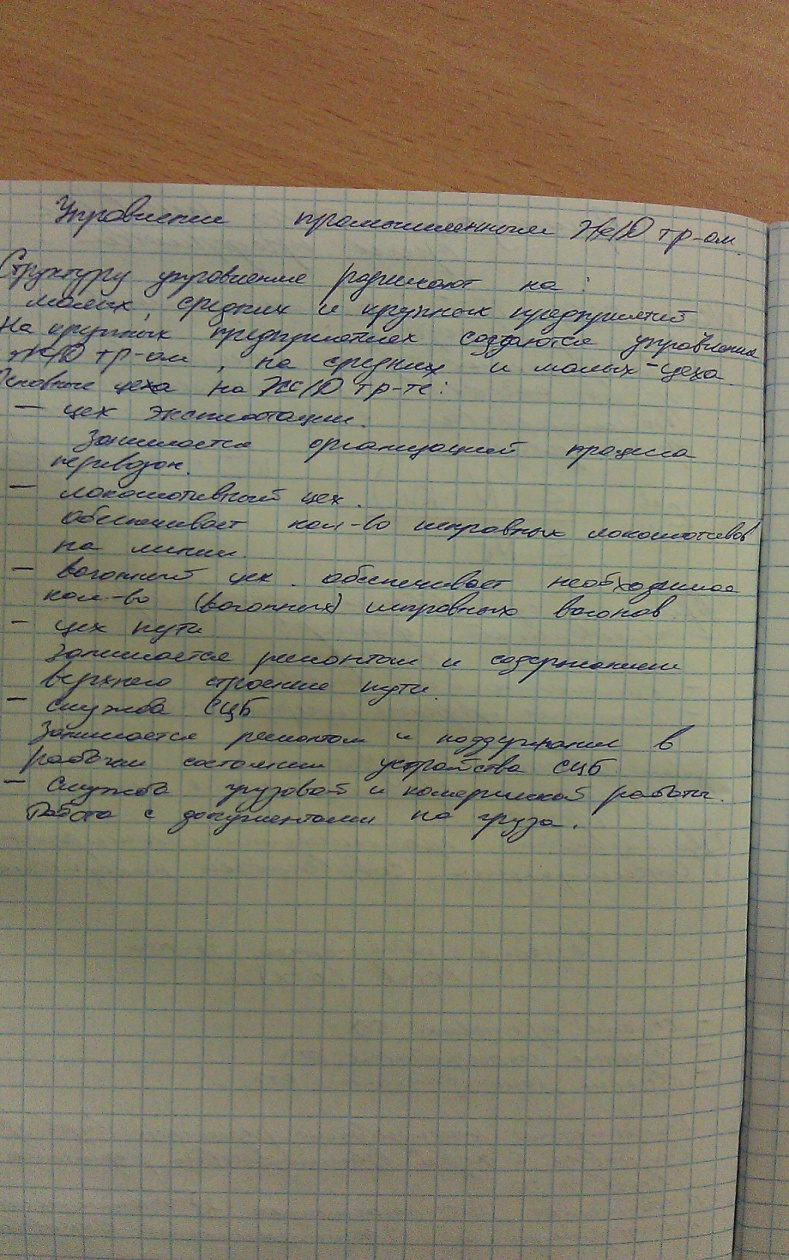 Управление промышленным Ж/Д тр-ом.
Структуру управление различают на:
малых, средних и крупных предприятий
На крупных предприятиях создаются управления
Ж/Д тр-ом, на средних и малых - цеха
Основные цеха на Ж/Д тр-те:
— цех эксплотации.
Занимается организацией процеса
перевозок.
— локомотивный цех.
обеспечивает кол-во исправных локомотивов
на линии.
— вагонный цех. обеспечивает необходимое
кол-во (вагонных) исправных вагонов
— цех пути
Занимается ремонтом и содержанием
верхнего строение пути.
— служба СЦБ
Занимается ремонтом и поддержании в
рабочем состоянии устройства СЦБ
— служба грузовой и комерческой работы.
Работа с документами на груза.